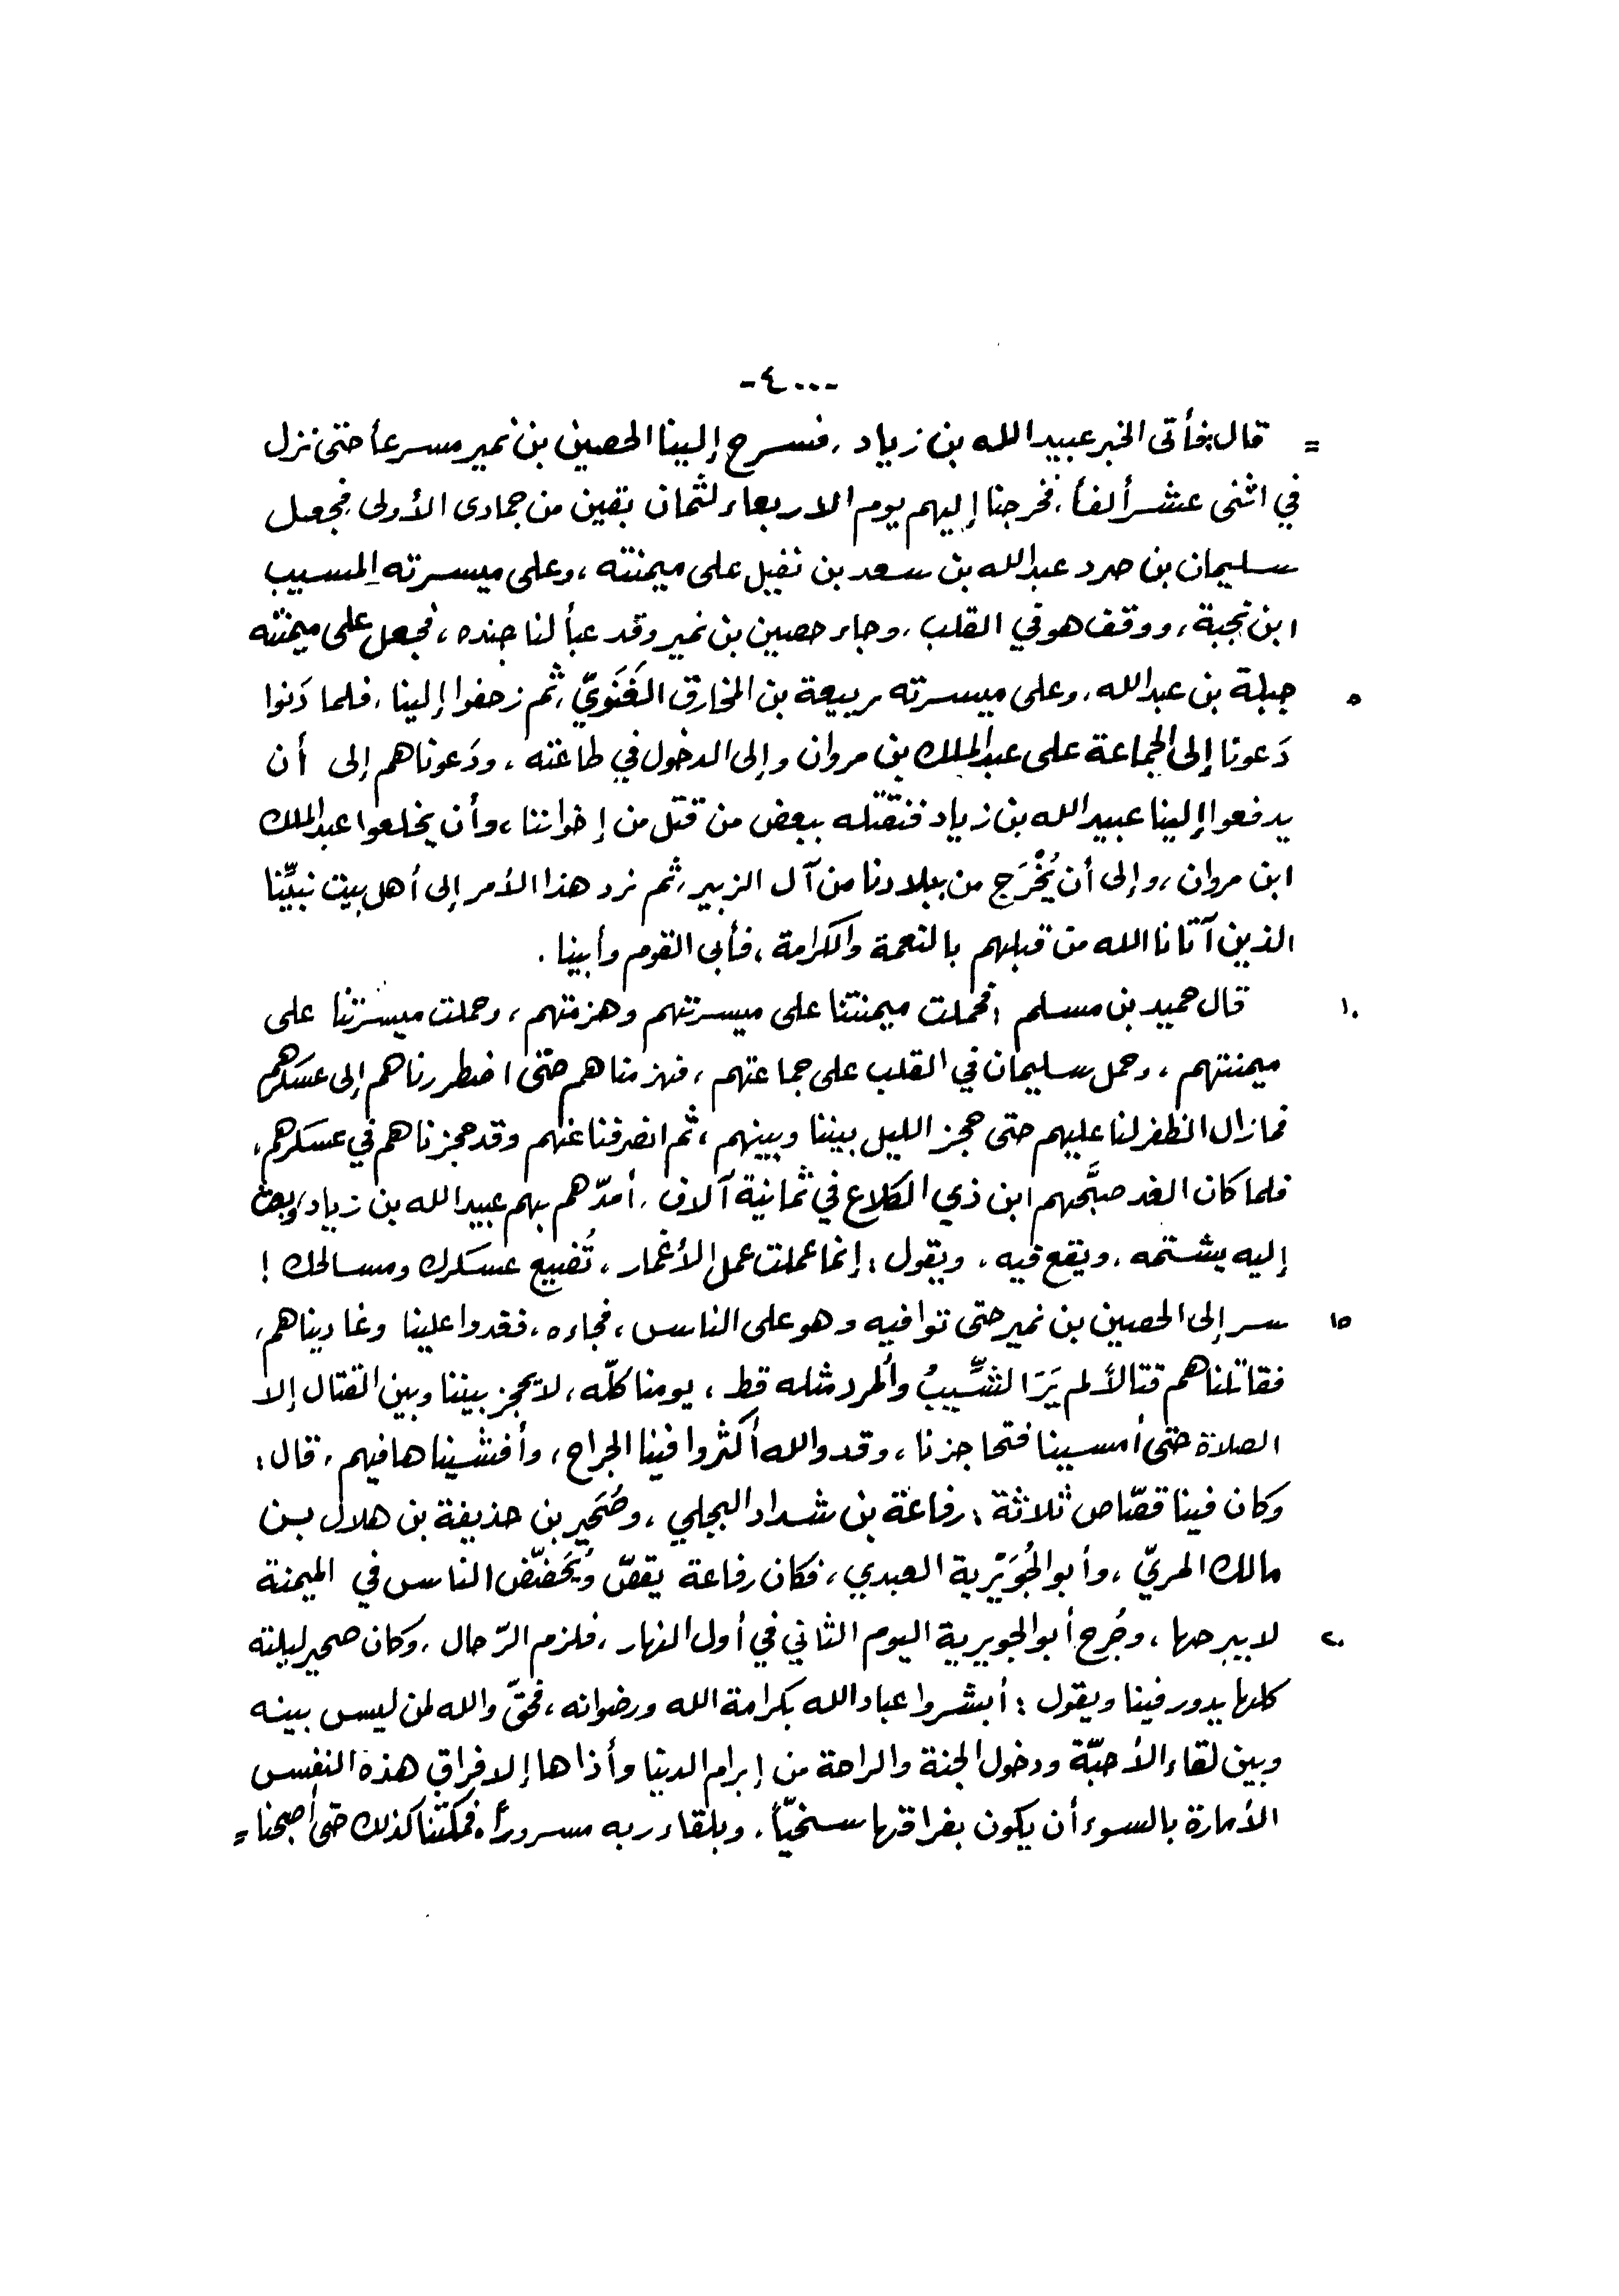 -٤٠٠٠-
= قال: فأتى الخبر عبيد الله بن زياد، فسرح إلينا الحصين بن نمير مسرعاً حتى نزل
في اثنى عشر ألفاً، فخرجنا إليهم يوم الاربعاء لثمان بقين من جمادى الأولى، فجعل
سليمان بن صرد عبدالله بن سعد بن نفيل على ميمنته، وعلى ميسرته المسيب
ابن نجبة، ووقف هو في القلب، وجاء حصين بن نمير وقد عبأ لنا جنده، فجعل على ميمنته
٥ جبلة بن عبدالله، وعلى ميسرته ربيعة بن المخارق الغَنَويّ، ثم زحفوا إلينا، فلما دَنوا
دَعونا إلى الجماعة على عبد الملك بن مروان وإلى الدخول في طاعته، ودَعوناهم إلى أن
يدفعوا إلينا عبيد الله بن زياد فنقتله ببعض من قتل من إخواننا، وأن يخلعوا عبد الملك
ابن مروان، وإلى أن يُخْرَج من ببلادنا من آل الزبير، ثم نرد هذا الأمر إلى أهل بيت نبيِّنا
الذين آتانا الله من قبلهم بالنعمة والكرامة، فأبى القوم وأبينا.
١٠ قال حميد بن مسلم: فحملت ميمنتنا على ميسرتهم وهزمتهم، وحملت ميسرتنا على
ميمنتهم، وحمل سليمان في القلب على جماعتهم، فهزمناهم حتى اضطررناهم إلى عسكرهم
فما زال الظفر لنا عليهم حتى حجز الليل بيننا وبينهم، ثم انصرفنا عنهم وقد حجزناهم في عسكرهم،
فلما كان الغد صبَّحهم ابن ذي الكلاع في ثمانية آلاف، أمدّهم بهم عبيد الله بن زياد، وبعث
إليه يشتمه، ويقع فيه، ويقول: إنما عملت عمل الأغمار، تُضيع عسكرك ومسالحك!
١٥ سر إلى الحصين بن نمير حتى توافيه وهو على الناس، فجاءه، فغدوا علينا وغاديناهم،
فقاتلناهم قتالاً لم يَرَ الشِّيبُ والمرد مثله قط، يومنا كلّه، لا يحجز بيننا وبين القتال إلا
الصلاة حتى أمسينا فتحاجزنا، وقد والله أكثروا فينا الجراح، وأفشيناها فيهم، قال:
وكان فينا قصّاص ثلاثة: رفاعة بن شداد البجلي، وصُحَير بن حذيفة بن هلال بن
مالك المريّ، وأبو الجُوَيْرية العبدي، فكان رفاعة يقصّ ويُحَضّض الناس في الميمنة
٢٠ لا يبرحها، وجُرح أبو الجويرية اليوم الثاني في أول النهار، فلزم الرّحال، وكان صحير ليلته
كلها يدور فينا ويقول: أبشروا عباد الله بكرامة الله ورضوانه، فحقّ والله لمن ليس بينه
وبين لقاء الأحبّة ودخول الجنة والراحة من إبرام الدنيا وأذاها إلا فراق هذه النفس
الأمارة بالسوء أن يكون بفراقها سخيّاً، وبلقاء ربه مسروراً. فمكثنا كذلك حتى أصبحنا =